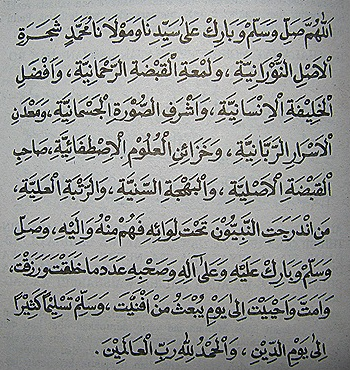 اَللّٰهُمَّ صَلِّ وَسَلِّمْ وَبَارِكْ عَلَى سَيِّدِنَا وَمَوْلَانَا مُحَمَّدٍ شَجَرَةِ
الْاَصْلِ النُّوْرَانِيَّةِ ، وَلَمْعَةِ الْقَبْضَةِ الرَّحْمَانِيَّةِ ، وَاَفْضَلِ
الْخَلِيْقَةِ الْاِنْسَانِيَّةِ ، وَاَشْرَفِ الصُّوْرَةِ الْجِسْمَانِيَّةِ ، وَمَعْدَنِ
الْاَسْرَارِ الرَّبَّانِيَّةِ ، وَخَزَائِنِ الْعُلُوْمِ الْاِصْطِفَائِيَّةِ ، صَاحِبِ
الْقَبْضَةِ الْاَصْلِيَّةِ ، وَالْبَهْجَةِ السَّنِيَّةِ ، وَالرُّتْبَةِ الْعَلِيَّةِ ،
مَنِ انْدَرَجَتِ النَّبِيُّوْنَ تَحْتَ لِوَائِهِ فَهُمْ مِنْهُ وَاِلَيْهِ ، وَصَلِّ
وَسَلِّمْ وَبَارِكْ عَلَيْهِ وَعَلَى اٰلِهِ وَصَحْبِهِ عَدَدَ مَا خَلَقْتَ وَرَزَقْتَ ،
وَاَمَتَّ وَاَحْيَيْتَ اِلَى يَوْمِ يُبْعَثُ مَنْ اَفْنَيْتَ ، وَسَلِّمْ تَسْلِيْمًا كَثِيْرًا
اِلَى يَوْمِ الدِّيْنِ ، وَالْحَمْدُ لِلّٰهِ رَبِّ الْعَالَمِيْنَ .